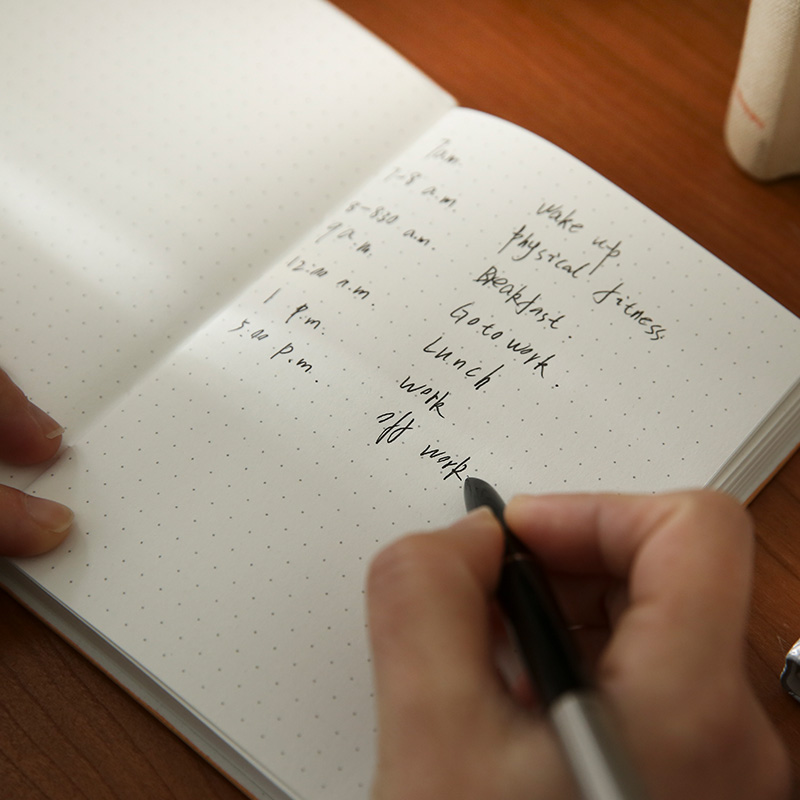 7am. wake up.
7-8 a.m. physical fitness
8-830 a.m. Breakfast.
9 a.m. Go to work.
12:00 n.m. Lunch
1 p.m. work
5:00 p.m. off work